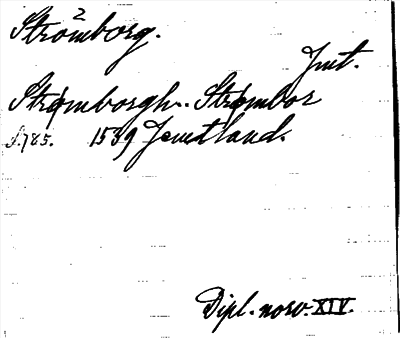 Strömborg.
Jmt.
Strømborgh. Strømbor
S. 785. 1539 Jemtland.
Dipl. norv. XIV.